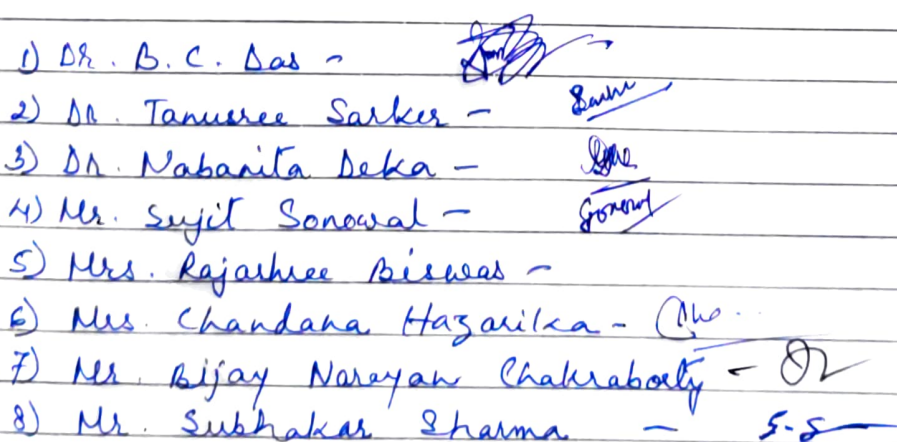 1) Dr. B. C. Das -
2) Dr. Tanusree Sarker -
3) Dr. Nabanita Deka -
4) Mr. Sujit Sonowal - Sonowal
5) Mrs. Rajashree Biswas -
6) Mrs. Chandana Hazarika -
7) Mr. Bijay Narayan Chakraborty -
8) Mr. Subhakar Sharma - S.S